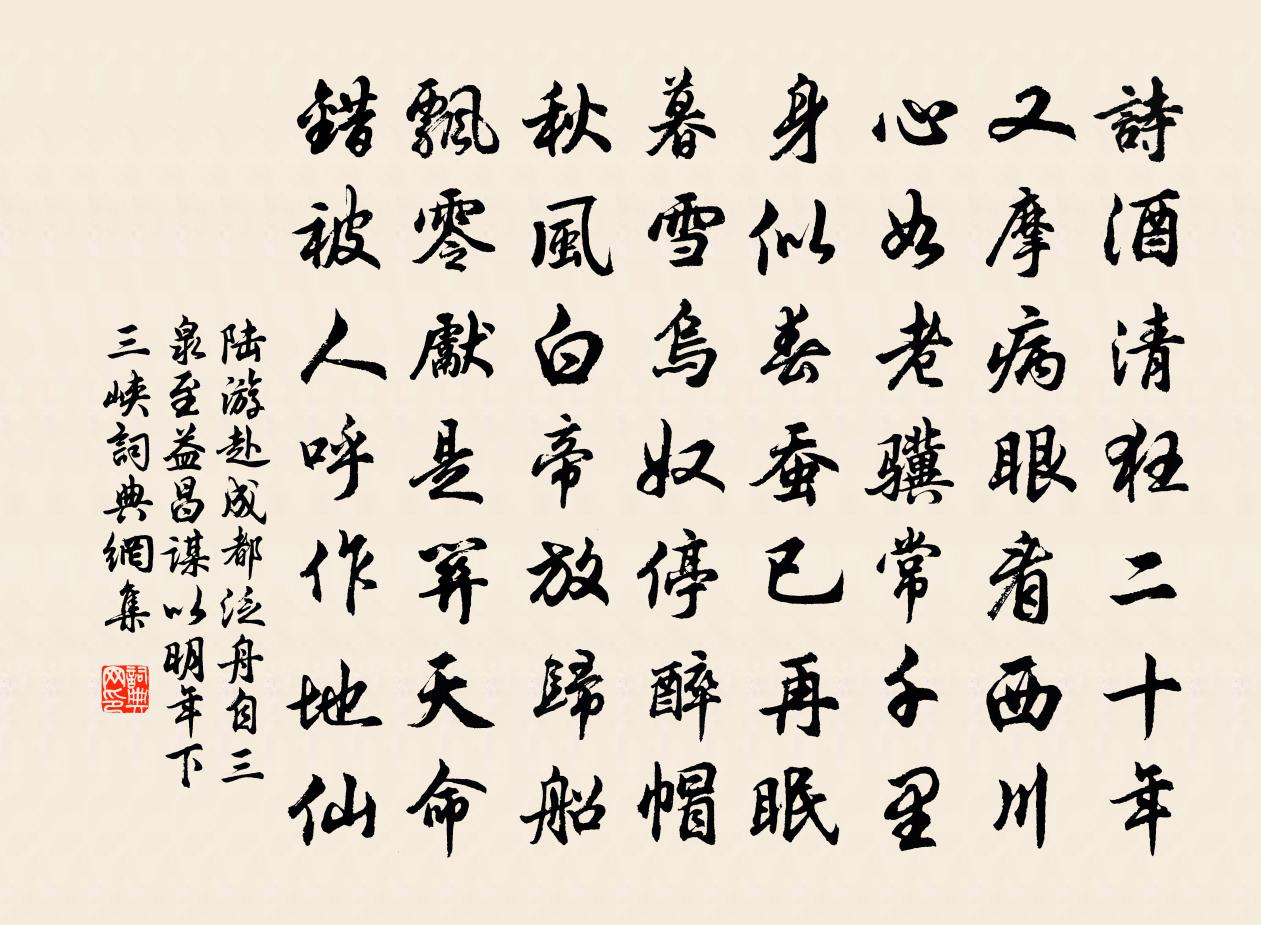 詩酒清狂二十年
又摩病眼看西川
心如老驥常千里
身似春蚕已再眠
暮雪烏奴停醉帽
秋風白帝放歸船
飄零獻是關天命
錯被人呼作地仙
陆游赴成都泛舟自三
泉至益昌謀以明年下
三峡詞典網集
詞典网印